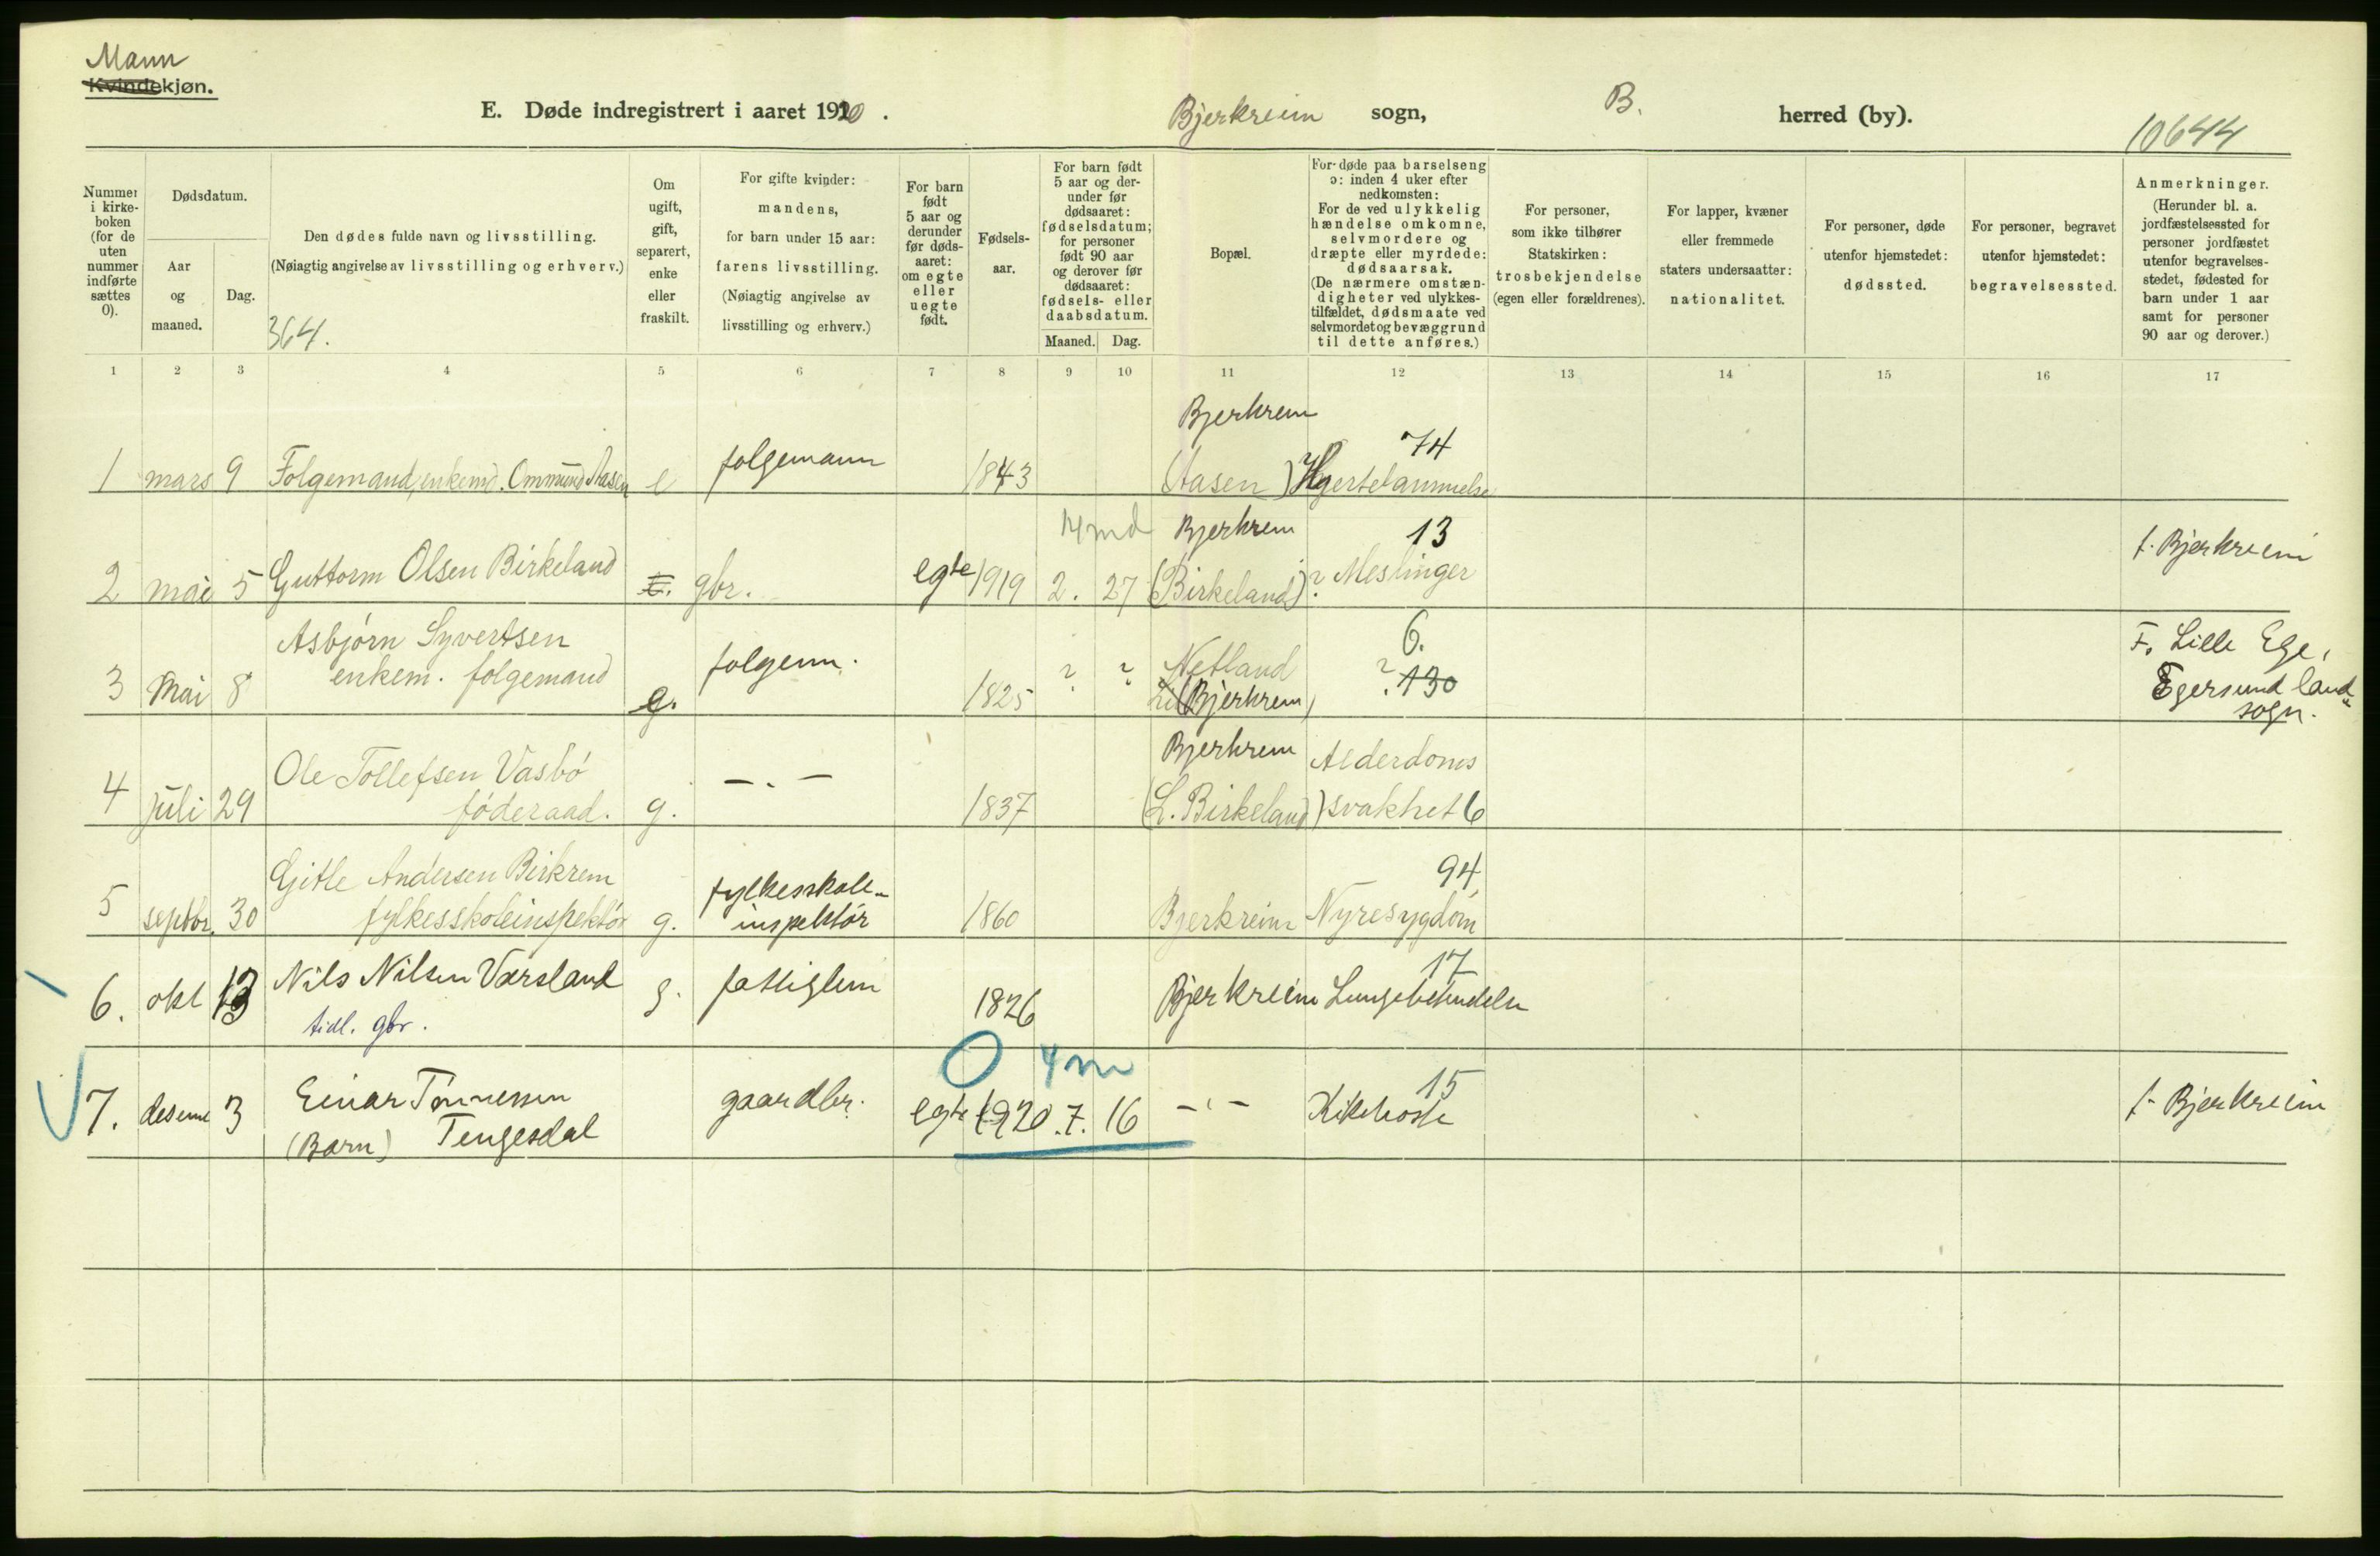 Mann
Kvindekjøn.
E. Døde indregistrert i aaret 1920. Bjerkreim sogn, B. herred (by).
10644
Nummer i kirkeboken (for de uten nummer indførte sættes 0).
Dødsdatum.
Aar og maaned.
Dag.
Den dødes fulde navn og livsstilling.
(Nøiagtig angivelse av livsstilling og erhverv.)
364.
Om ugift, gift, separert, enke eller fraskilt.
For gifte kvinder: mandens, for barn under 15 aar: farens livsstilling. (Nøiagtig angivelse av livsstilling og erhverv.)
For barn født 5 aar og derunder før dødsaaret: om egte eller uegte født.
Fødselsaar.
For barn født 5 aar og derunder før dødsaaret: fødselsdatum; for personer født 90 aar og derover før dødsaaret: fødsels- eller daabsdatum.
Maaned. Dag.
Bopæl.
For døde paa barselseng ɔ: inden 4 uker efter nedkomsten: For de ved ulykkelig hændelse omkomne, selvmordere og dræpte eller myrdede: dødsaarsak. (De nærmere omstændigheter ved ulykkestilfældet, dødsmaate ved selvmordet og bevæggrund til dette anføres.)
For personer, som ikke tilhører Statskirken: trosbekjendelse (egen eller forældrenes).
For lapper, kvæner eller fremmede staters undersaatter: nationalitet.
For personer, døde utenfor hjemstedet: dødssted.
For personer, begravet utenfor hjemstedet: begravelsessted.
Anmerkninger. (Herunder bl. a. jordfæstelsessted for personer jordfæstet utenfor begravelsesstedet, fødested for barn under 1 aar samt for personer 90 aar og derover.)
1 2 3 4 5 6 7 8 9 10 11 12 13 14 15 16 17
Bjerkrem 74
1 mars 9 Folgemand, enkem. Ommund Aasen e folgemann 1843 (Aasen) Hjertelammelse
14 md Bjerkrem 13 f. Bjerkreim
2 mai 5 Guttorm Olsen Birkeland E. gbr. egte 1919 2. 27 (Birkeland) ? Meslinger
Asbjørn Syvertsen 6. F. Lille Ege,
3 Mai 8 enkem. folgemand e. folgem. 1825 ? ? Netland ? 130 Egersund land-
(Bjerkrem) sogn.
Ole Tollefsen Vasbø -"- Bjerkrem Alderdoms
4 juli 29 føderaad. g. 1837 (L. Birkeland) svakhet 6
Gitle Andersen Birkrem fylkesskole- 94
5 septbr. 30 fylkesskoleinspektør g. inspektør 1860 Bjerkreim Nyresygdom
6. okt 13 Nils Nilsen Værsland g. fattiglem 1826 Bjerkreim Lungebetendelse 17
tidl. gbr.
0 4 m
7. desem 3 Einar Tønnessen gaardbr. egte 1920 7. 16 -"- Kikhoste 15 f. Bjerkreim
(Barn) Tengesdal